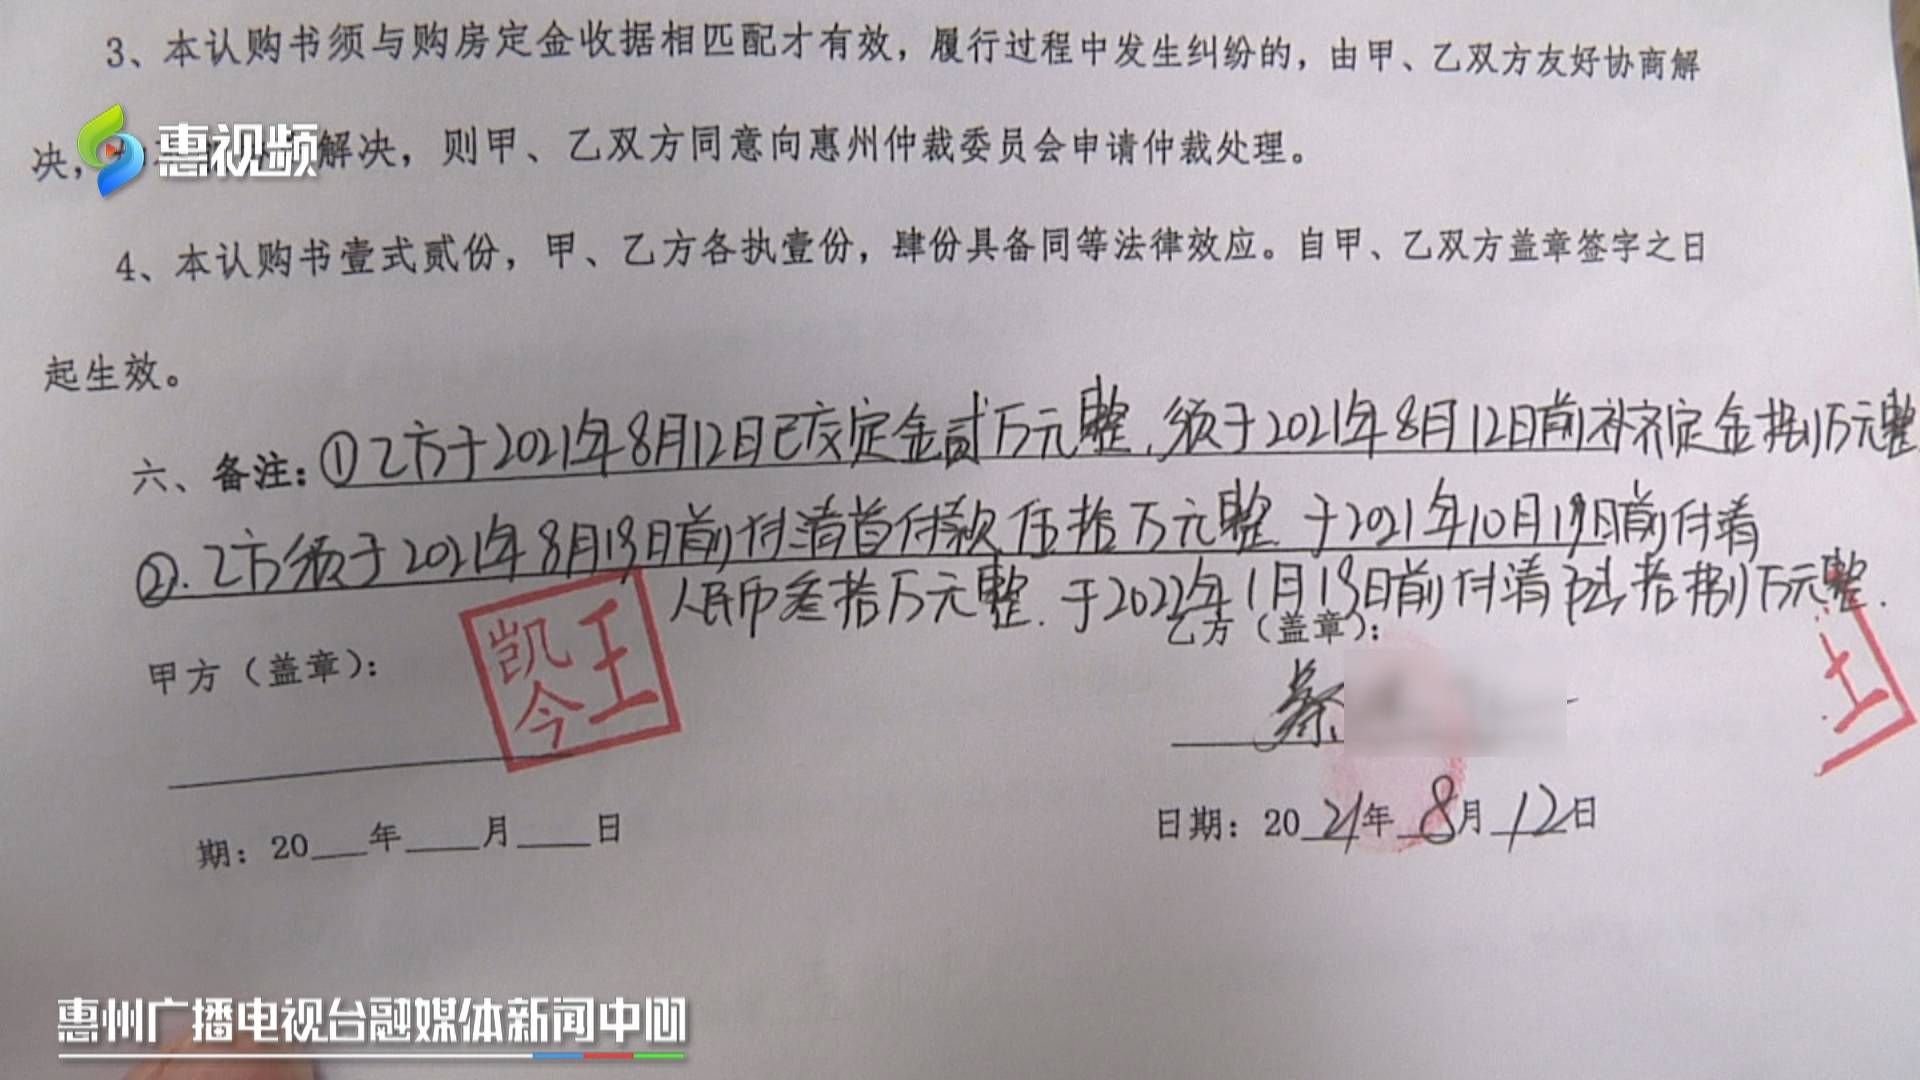 3、本认购书须与购房定金收据相匹配才有效，履行过程中发生纠纷的，由甲、乙双方友好协商解
决，解决，则甲、乙双方同意向惠州仲裁委员会申请仲裁处理。
惠视频
4、本认购书壹式贰份，甲、乙方各执壹份，肆份具备同等法律效应。自甲、乙双方盖章签字之日
起生效。
六、备注：①乙方于2021年8月12日已交定金贰万元整.须于2021年8月12日前补齐定金捌万元整
②.乙方须于2021年8月19日前付清首付款伍拾万元整.于2021年10月19日前付清
人民币叁拾万元整.于2022年1月19日前付清 拾捌万元整.
甲方（盖章）：
乙方（盖章）：
凯今王
蔡
期：20 年 月 日
日期：2021年8月12日
惠州广播电视台融媒体新闻中心